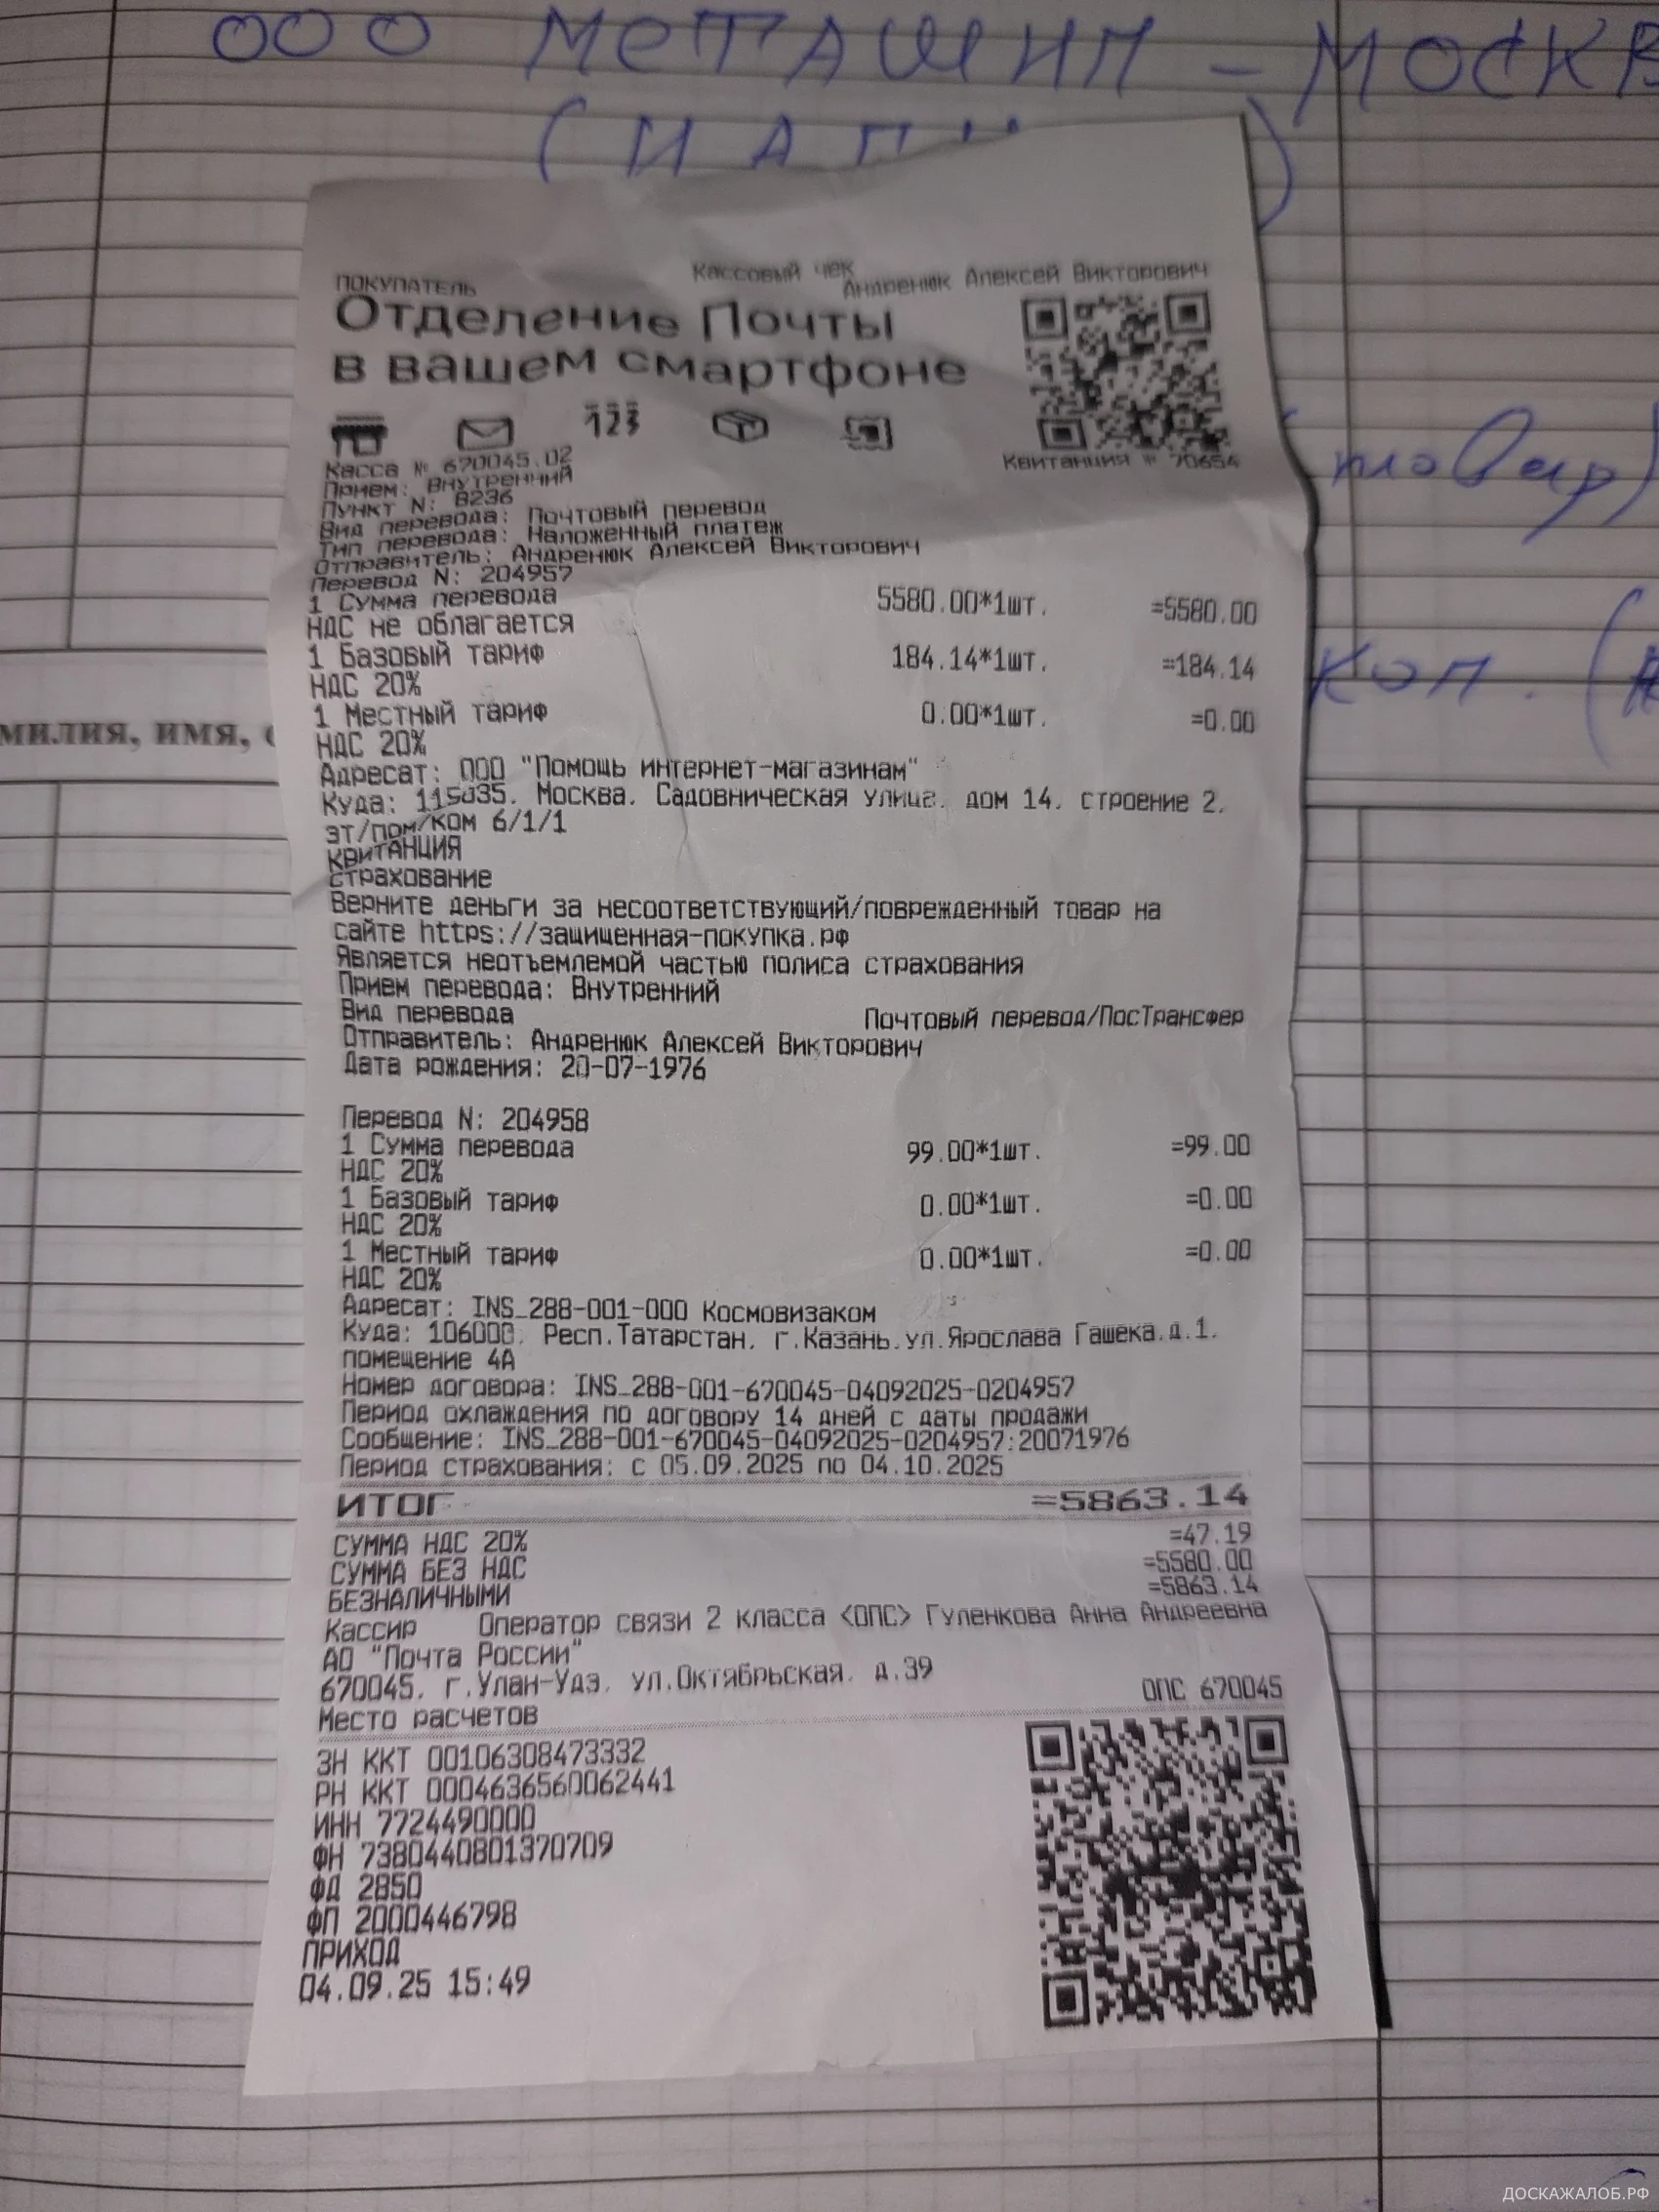 ООО МЕТАШИП - МОСКВ
Кассовый чек
ПОКУПАТЕЛЬ
Андренюк Алексей Викторович
Отделение Почты
в вашем смартфоне
123
Квитанция № 70654
Касса № 670045.02
Прием: Внутренний
Пункт N: 8236
Вид перевода: Почтовый перевод
Тип перевода: Наложенный платеж
Отправитель: Андренюк Алексей Викторович
Перевод N: 204957
1 Сумма перевода 5580.00*1шт. =5580.00
НДС не облагается
1 Базовый тариф 184.14*1шт. =184.14
НДС 20%
1 Местный тариф 0.00*1шт. =0.00
НДС 20%
Адресат: ООО "Помощь интернет-магазинам"
Куда: 115035, Москва, Садовническая улица, дом 14, строение 2,
эт/пом/ком 6/1/1
КВИТАНЦИЯ
страхование
Верните деньги за несоответствующий/поврежденный товар на
сайте https://защищенная-покупка.рф
Является неотъемлемой частью полиса страхования
Прием перевода: Внутренний
Вид перевода Почтовый перевод/ПосТрансфер
Отправитель: Андренюк Алексей Викторович
Дата рождения: 20-07-1976
Перевод N: 204958
1 Сумма перевода 99.00*1шт. =99.00
НДС 20%
1 Базовый тариф 0.00*1шт. =0.00
НДС 20%
1 Местный тариф 0.00*1шт. =0.00
НДС 20%
Адресат: INS_288-001-000 Космовизаком
Куда: 106000, Респ.Татарстан, г.Казань,ул.Ярослава Гашека,д.1,
помещение 4А
Номер договора: INS_288-001-670045-04092025-0204957
Период охлаждения по договору 14 дней с даты продажи
Сообщение: INS_288-001-670045-04092025-0204957;20071976
Период страхования: с 05.09.2025 по 04.10.2025
ИТОГ =5863.14
СУММА НДС 20% =47.19
СУММА БЕЗ НДС =5580.00
БЕЗНАЛИЧНЫМИ =5863.14
Кассир Оператор связи 2 класса <ОПС> Гуленкова Анна Андреевна
АО "Почта России"
670045, г.Улан-Удэ, ул.Октябрьская, д.39
Место расчетов ОПС 670045
ЗН ККТ 00106308473332
РН ККТ 0004636560062441
ИНН 7724490000
ФН 7380440801370709
ФД 2850
ФП 2000446798
ПРИХОД
04.09.25 15:49
товар)
коп. (
милия, имя,
ДОСКАЖАЛОБ.РФ